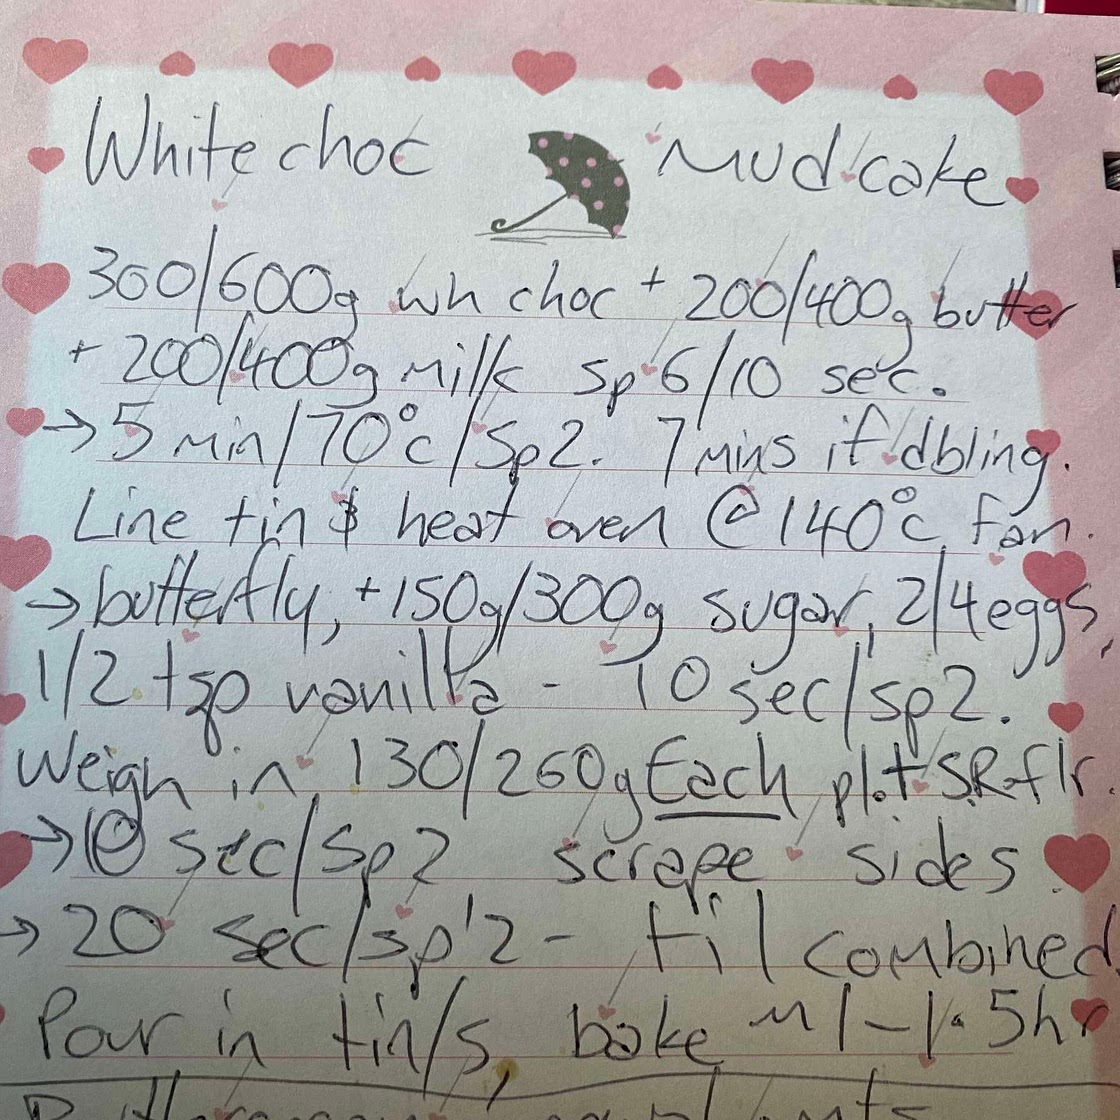 White choc Mud cake
300/600g wh choc + 200/400g butter
+ 200/400g milk sp 6/10 sec.
→ 5 min/70°c/Sp2. 7 mins if dbling.
Line tin & heat oven @ 140°c fan.
→ butterfly, + 150g/300g sugar, 2/4 eggs,
1/2 tsp vanilla - 10 sec/sp2.
Weigh in 130/260g Each pl + SR flr.
→ 10 sec/Sp2 scrape sides.
→ 20 sec/sp 2 - til combined
Pour in tin/s, bake ~ 1-1.5hr